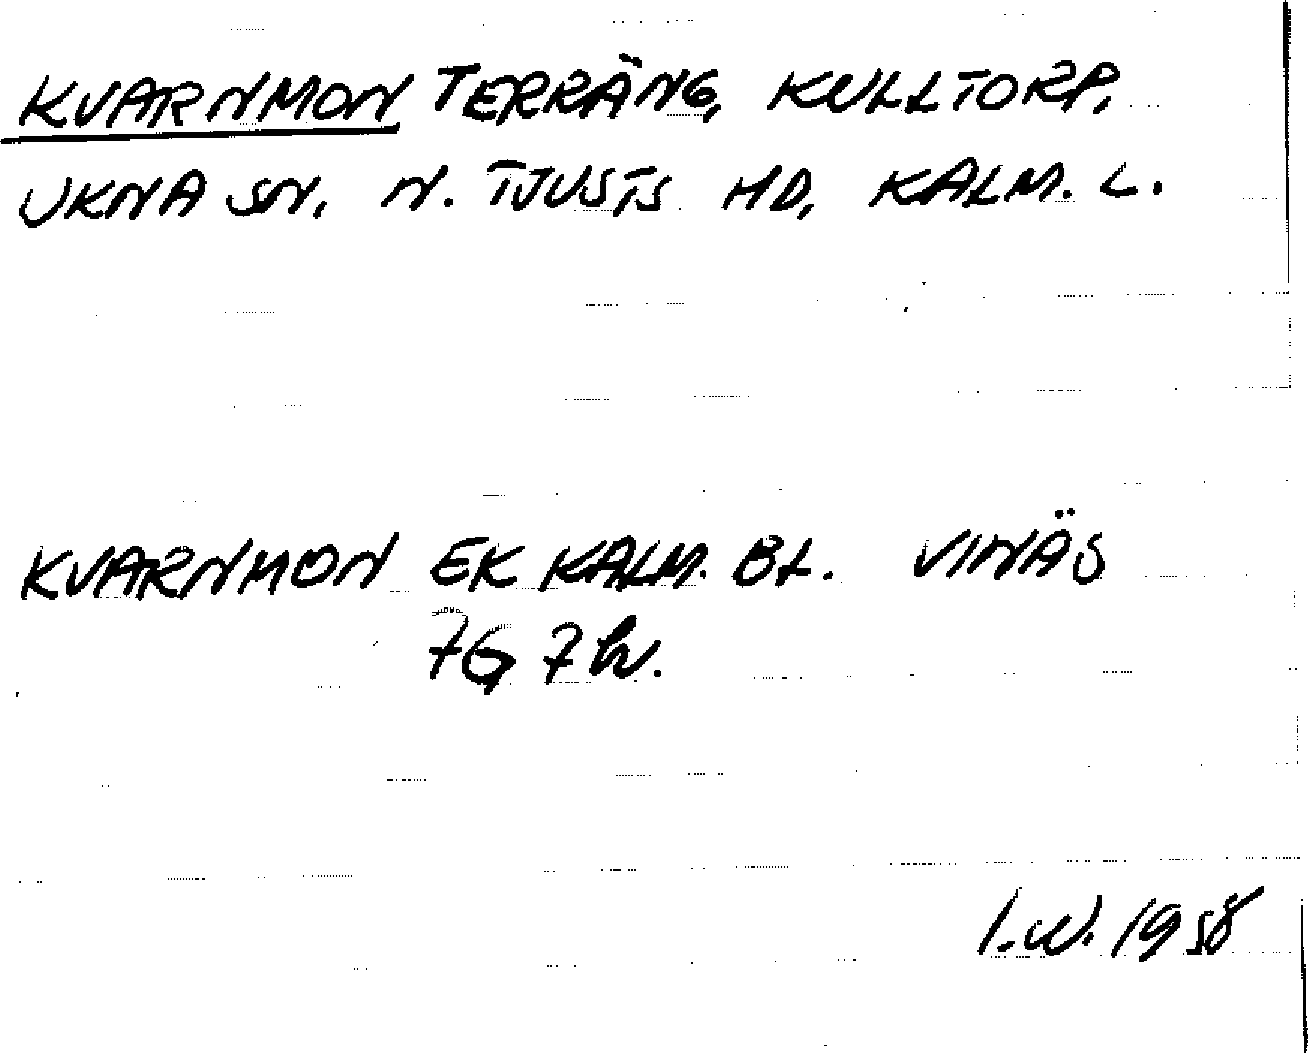 KVARNMON TERRÄNG, KULLTORP,
UKNA SN, N. TJUSTS HD, KALM. L.
KVARNMON EK KALM. BL. VINÄS
7G 7h.
I.W. 1958